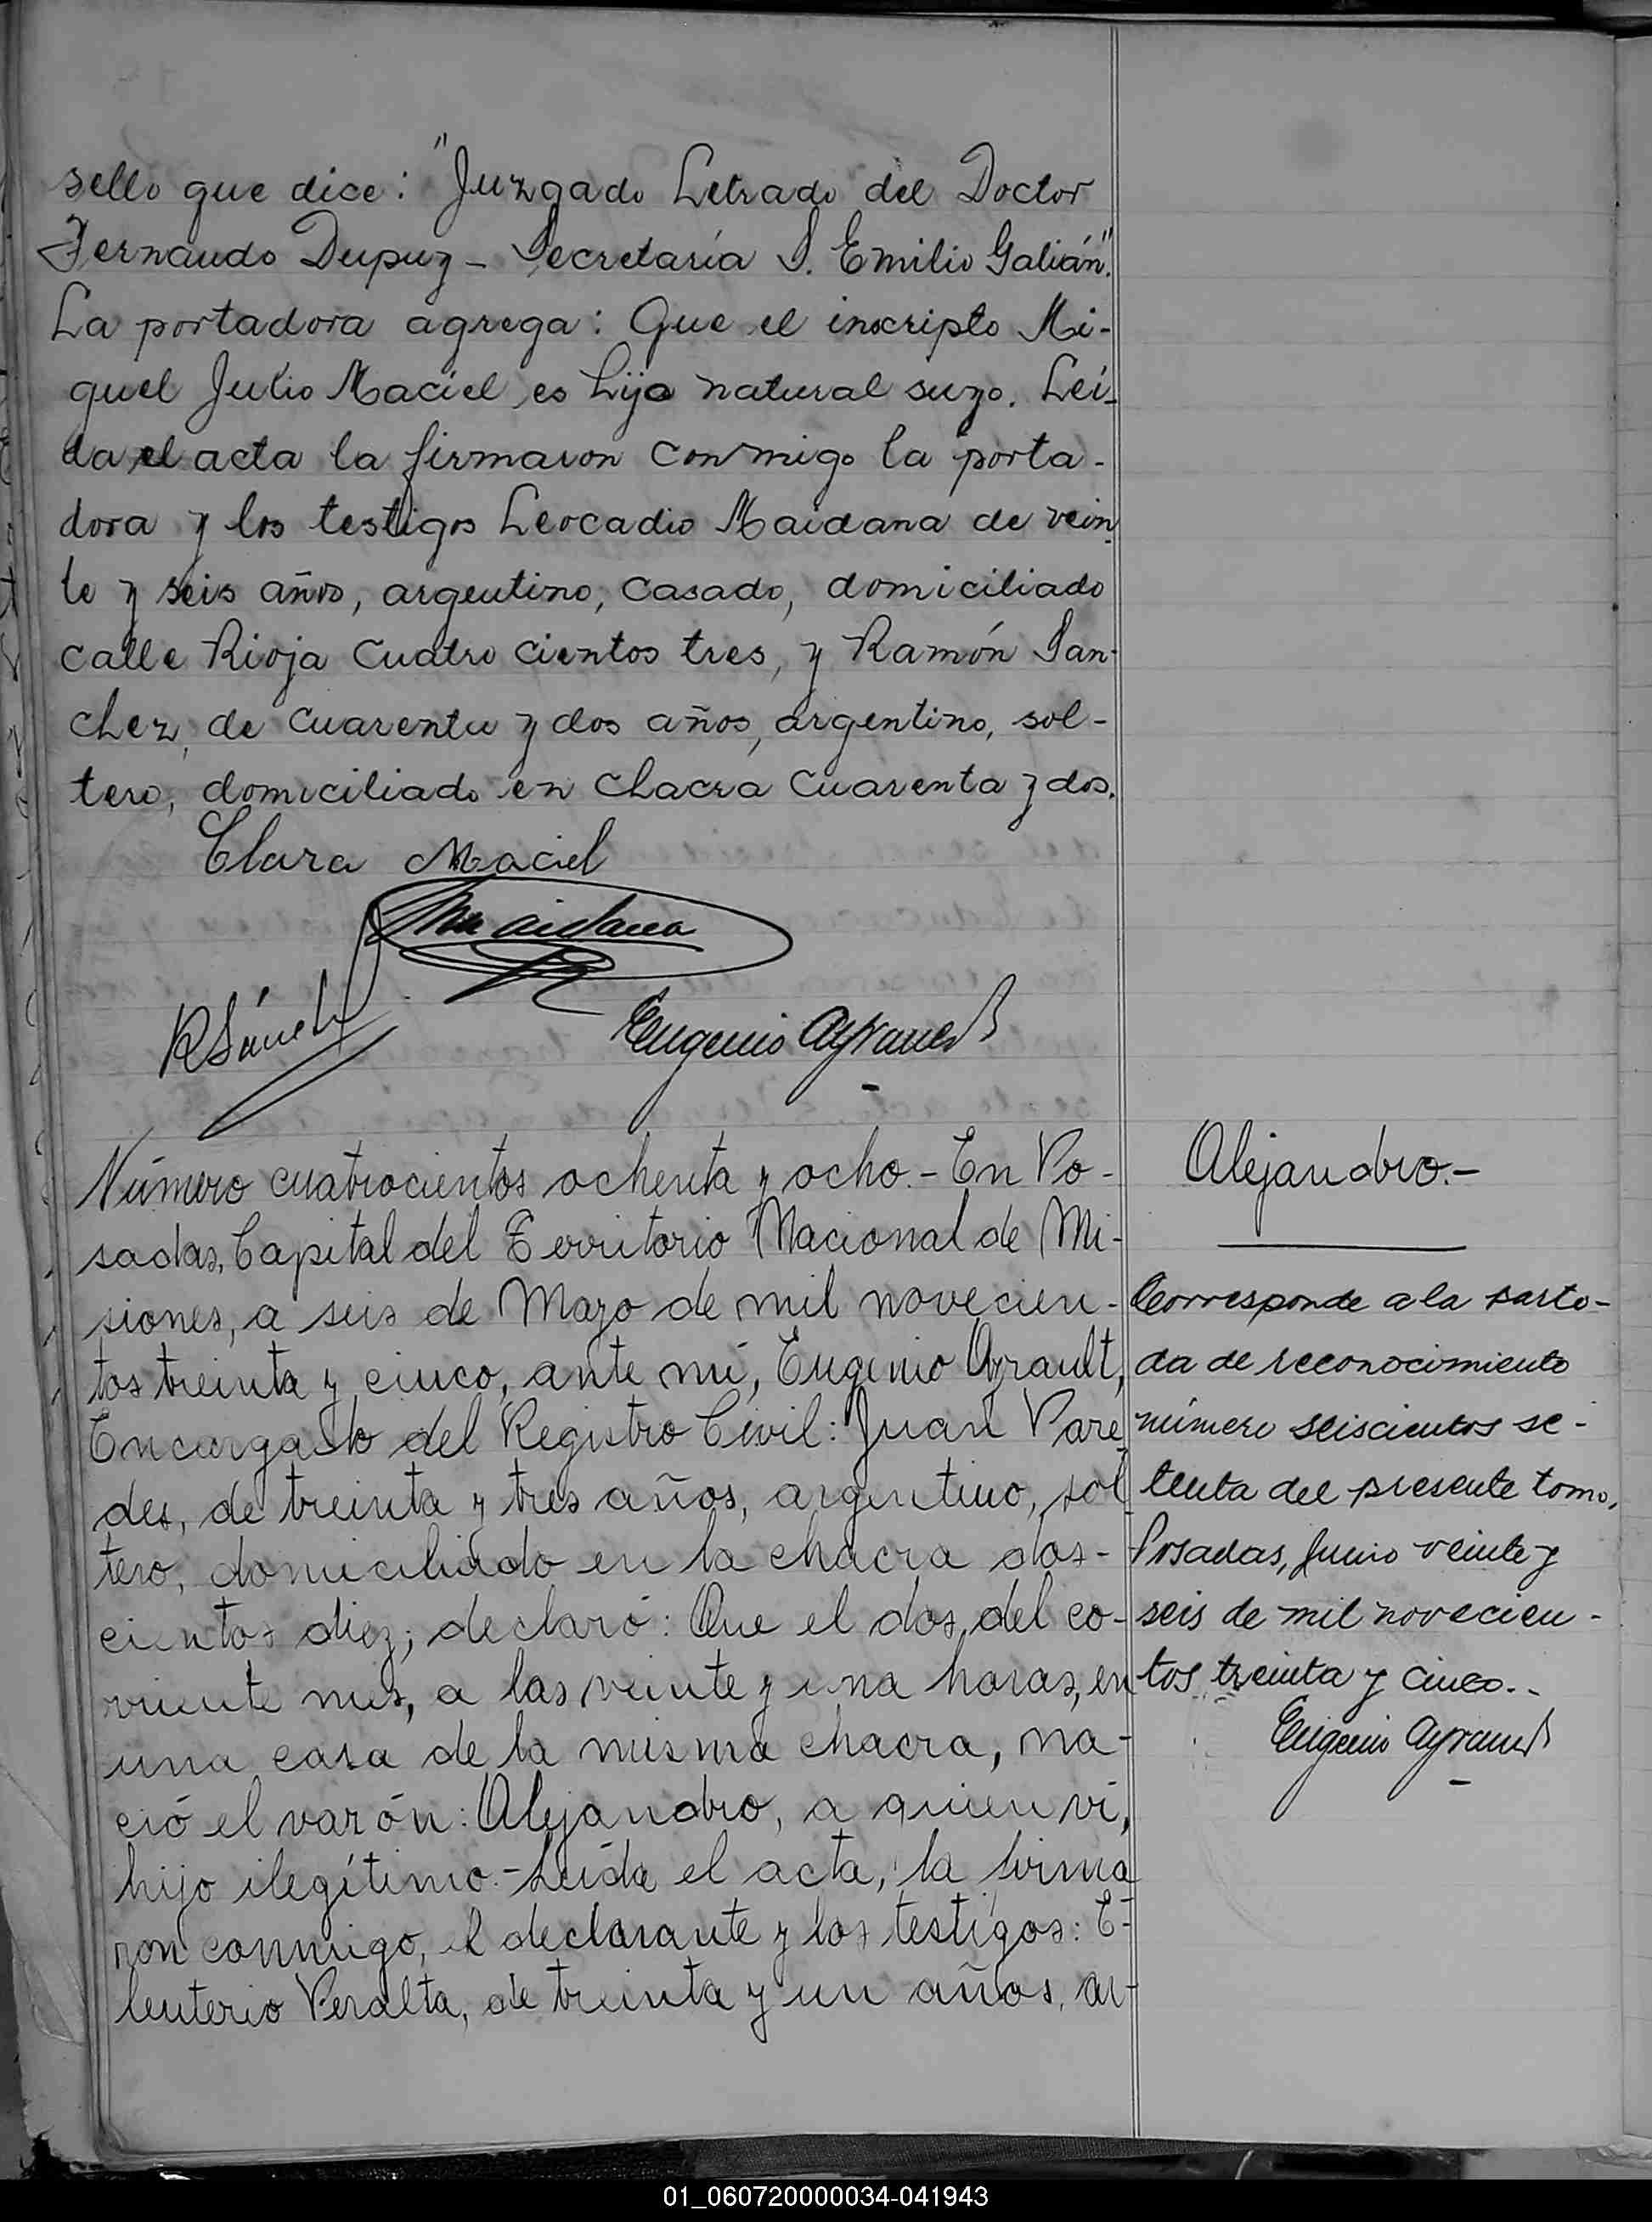 sello que dice: "Juzgado Letrado del Doctor
Fernando Dupuy - Secretaría S. Emilio Galián".
La portadora agrega: Que el inscripto Mi-
guel Julio Maciel es hijo natural suyo. Leí-
da el acta la firmaron conmigo la porta-
dora y los testigos Leocadio Maidana de vein
te y seis años, argentino, casado, domiciliado
calle Rioja cuatro cientos tres, y Ramón San-
chez, de cuarenta y dos años, argentino, sol-
tero, domiciliado en chacra cuarenta y dos.
Clara Maciel
Maidana
R Sánch
Eugenio Ayrault
Número cuatrocientos ochenta y ocho.- En Po-
sadas, Capital del Territorio Nacional de Mi-
siones, a seis de Mayo de mil novecien-
tos treinta y cinco, ante mí, Eugenio Ayrault,
Encargado del Registro Civil: Juan Pare
des, de treinta y tres años, argentino, sol
tero, domiciliado en la chacra dos-
cientos diez; declaró: Que el dos del co-
rriente mes, a las veinte y una horas, en
una casa de la misma chacra, na-
ció el varón: Alejandro, a quien ví,
hijo ilegítimo.- Leída el acta, la firma
ron conmigo, el declarante y los testigos: E-
leuterio Peralta, de treinta y un años, ar-
Alejandro.-
Corresponde a la parti-
da de reconocimiento
número seiscientos se-
tenta del presente tomo.
Posadas, Junio veinte y
seis de mil novecien-
tos treinta y cinco.-
Eugenio Ayrault
01_060720000034-041943